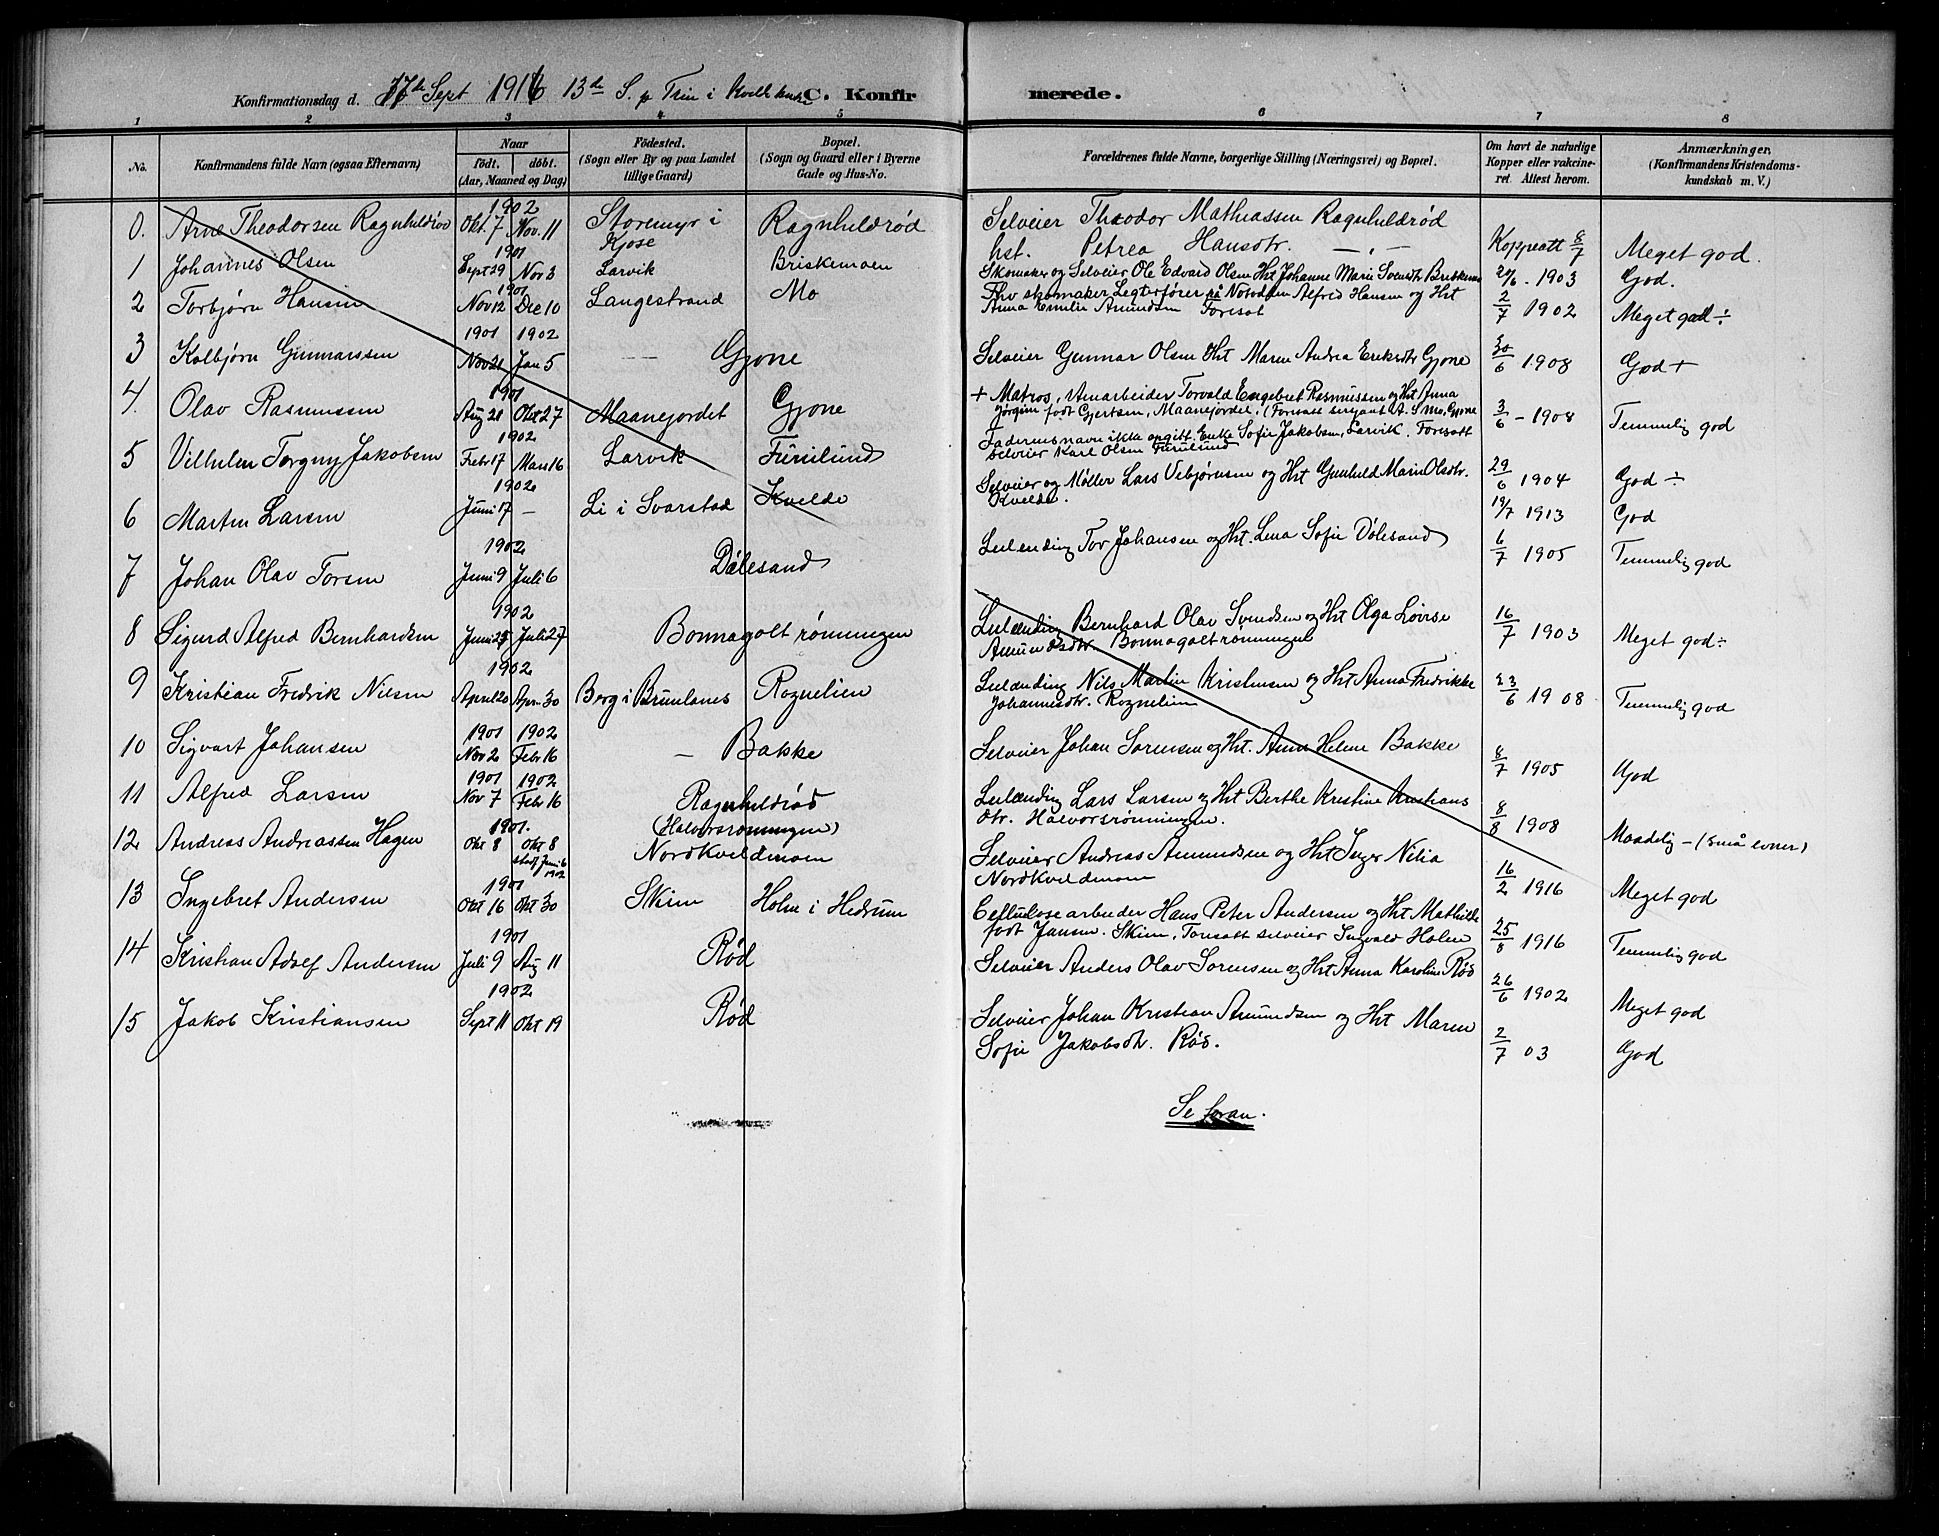 Konfirmationsdag d. 17de Sept 1916 13de S. p Trin i Kvelle C. Konfirmerede.
1 2 3 4 5 6 7 8
No. Konfirmandens fulde Navn (ogsaa Efternavn) Naar födt. döbt. (Aar, Maaned og Dag) Födested. (Sogn eller By og paa Landet tillige Gaard) Bopæl. (Sogn og Gaard eller i Byerne Gade og Hus-No. Forældrenes fulde Navne, borgerlige Stilling (Næringsvei) og Bopæl. Om havt de naturlige Kopper eller vakcineret. Attest herom. Anmærkninger. (Konfirmandens Kristendomskundskab m. V.)
0. Arne Theodorsen Ragnhildrød 1902 Okt. 7 Nov. 11 Storemyr i Kjose Ragnhildrød Selveier Theodor Mathiassen Ragnhildrød
hst. Petrea Hansdtr. — „ — Koppeatt 8/7 Meget god.
1 Johannes Olsen 1901 Sept 29 Nov 3 Larvik Briskemoen Skomaker og Selveier Ole Edvard Olsen Hst Johanne Marie Svendtr 20/6 - 1903 God.
2 Torbjørn Hansen 1901 Nov 12 Dec 10 Langestrand Mo Fhv skomaker Legterfører på Notodden Alfred Hansen og Hst
Anna Emilie Amundsen Foresat 2/7 1902 Meget god ÷
3 Kolbjørn Gunnarssen 1901 Nov 21 1902 Jan 5 — Gjone Selveier Gunnar Olsen Hst Maren Andrea Eriksdtr Gjone 30/6 1908 God +
4. Olav Rasmussen 1901 Aug 21 Okt 27 Maanejordet Gjone + Matros, Anarbeider Torvald Engebret Rasmussen og Hst Anna
Jørgine født Gjertsen, Maanejordet. (Foresatt sersjant A. S Mo, Gjone 3/6 - 1908 Temmelig god
5 Vilhelm Torgny Jakobsen 1902 Febr 17 Mars 16 Larvik Furulund Faderens navn ikke opgitt. Enke Sofie Jakobsen, Larvik. Foresatt
Selveier Karl Olsen Furulund 29/6 1904 God ÷
6 Martin Larsen 1902 Juni 17 — Li i Svarstad Kvelde Selveier og Møller Lars Vebjørnsen og Hst Gunhild Marie Olsdtr.
Kvelde. 19/7 1913 God
7 Johan Olav Torsen 1902 Juni 9 Juli 6 Dølesand Leilending Tor Johansen og Hst. Lena Sofie Dølesand 6/7 1905 Temmelig god
8 Sigurd Alfred Bernhardsen 1902 Juni 25 Juli 27 Bonnagoltrønningen Leilænding Bernhard Olav Svendsen og Hst Olga Lovise
Amundsdtr. Bonnagoltrønningen 16/7 1903 Meget god ÷
9 Kristian Fredrik Nilsen 1902 April 20 Apr. 30 Berg i Brunlanes Roznelien Leilænding Nils Martin Kristensen og Hst Anna Fredrikke
Johannesdtr. Roznelien 23/6 1908 Temmelig god
10 Sigvart Johansen 1901 Nov 2 1902 Febr 16 — Bakke Selveier Johan Sorensen og Hst. Anne Helene Bakke 8/7 1905 God
11 Alfred Larsen 1901 Nov 7 1902 Febr 16 Ragnhildrød (Halvorsrønningen) Leilænding Lars Larsen og Hst Berthe Kristine Kristians
dtr. Halvorsrønningen. 8/8 1908 Maadelig — (små evner)
12 Andreas Andreassen Hagen 1901. Okt 8 Okt 8 stadf Juni 6 1902 Nordkveldemoen Selveier Andreas Amundsen og Hst Inger Nilia
Nordkveldemoen 16/2 1916 Meget god
13 Ingebret Andersen 1901 Okt 16 Okt 30 Skim Holm i Hedrum Celluloсearbeider Hans Peter Andersen og Hst Mathilde
født Jansen. Skim, Foresatt selveier Ingvald Holm 25/8 1916 Temmelig god
14 Kristian Adolf Andersen 1901 Juli 9 Aug 11 Rød Selveier Anders Olav Sorensen og Hst Anna Karoline Rød 26/6 1902 Meget god
15 Jakob Kristiansen 1902 Sept 11 Okt 19 Rød Selveier Johan Kristian Amundsen og Hst Maren
Sofie Jakobsdtr. Rød. 2/7 03 God
Se foran.